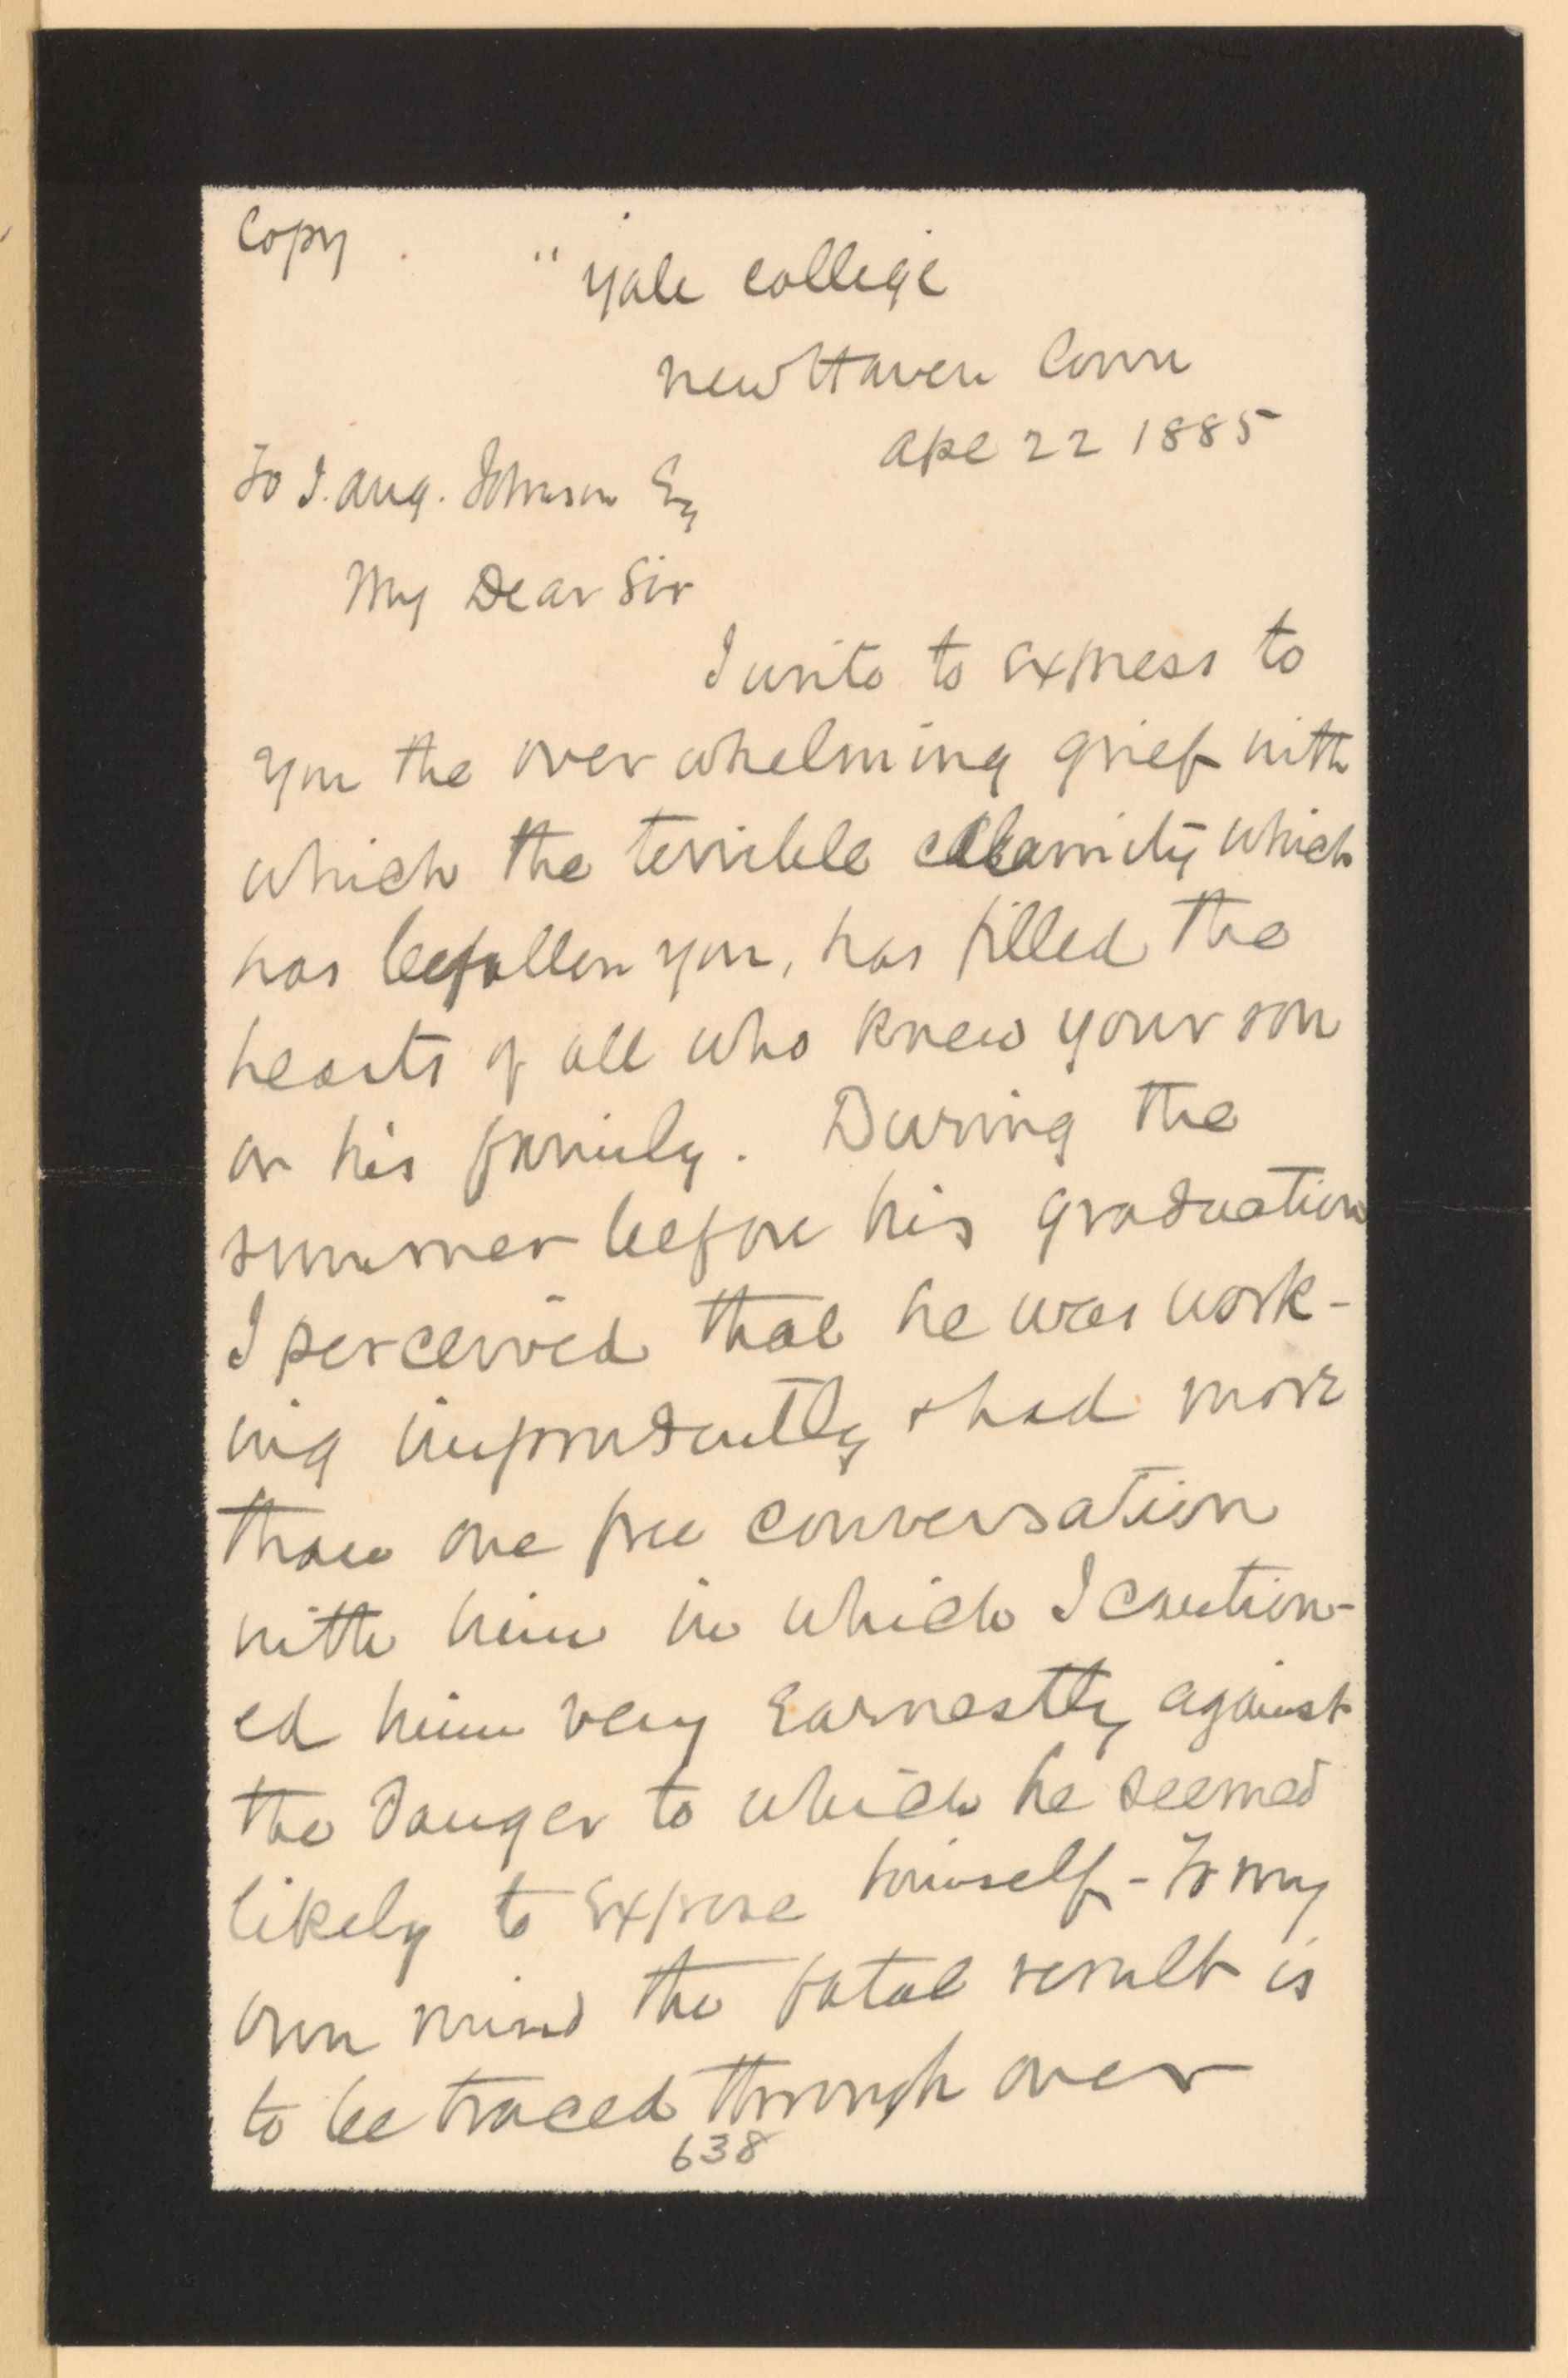 Copy
" Yale College
New Haven Conn
Apl 22 1885
To J. Aug. Johnson Esq
My Dear Sir
I write to express to
you the over whelming grief with
which the terrible calamity which
has befallen you, has filled the
hearts of all who knew your son
or his family. During the
summer before his graduation
I perceived that he was work-
ing imprudently & had more
than one free conversation
with him in which I caution-
ed him very earnestly against
the danger to which he seemed
likely to expose himself - To my
own mind the fatal result is
to be traced through over
638